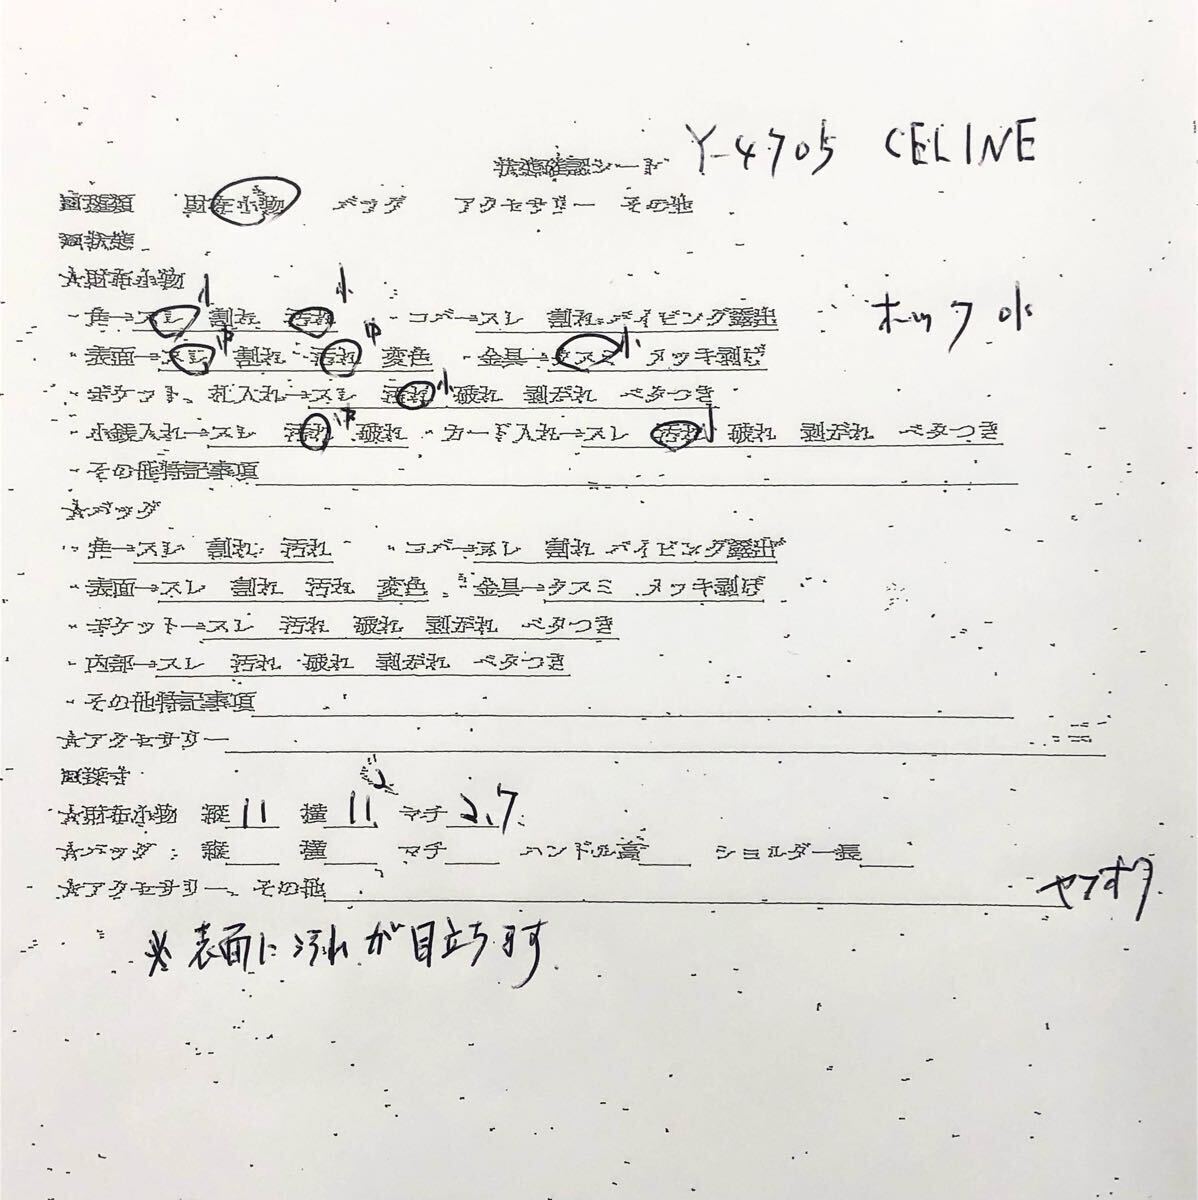 状態確認シート Y-4705 CELINE
回種類 財布小物 バッグ アクセサリー その他
回状態
☆財布小物
・角→スレ 小 割れ 汚れ 小 ・コバ→スレ 割れ パイピング露出 ホック 小
・表面→スレ 中 割れ 汚れ 中 変色 ・金具→クスミ 小 メッキ剥げ
・ポケット、札入れ→スレ 汚れ 小 破れ 剥がれ ベタつき
・小銭入れ→スレ 汚れ 中 破れ ・カード入れ→スレ 汚れ 破れ 剥がれ ベタつき
・その他特記事項
☆バッグ
・角→スレ 割れ 汚れ ・コバ→スレ 割れ パイピング露出
・表面→スレ 割れ 汚れ 変色 ・金具→クスミ メッキ剥げ
・ポケット→スレ 汚れ 破れ 剥がれ ベタつき
・内部→スレ 汚れ 破れ 剥がれ ベタつき
・その他特記事項
☆アクセサリー
回採寸
☆財布小物 縦 11 横 11 マチ 2.7
☆バッグ: 縦 横 マチ ハンドル高 ショルダー長
☆アクセサリー、その他 ヤフオク
※表面に汚れが目立ちます